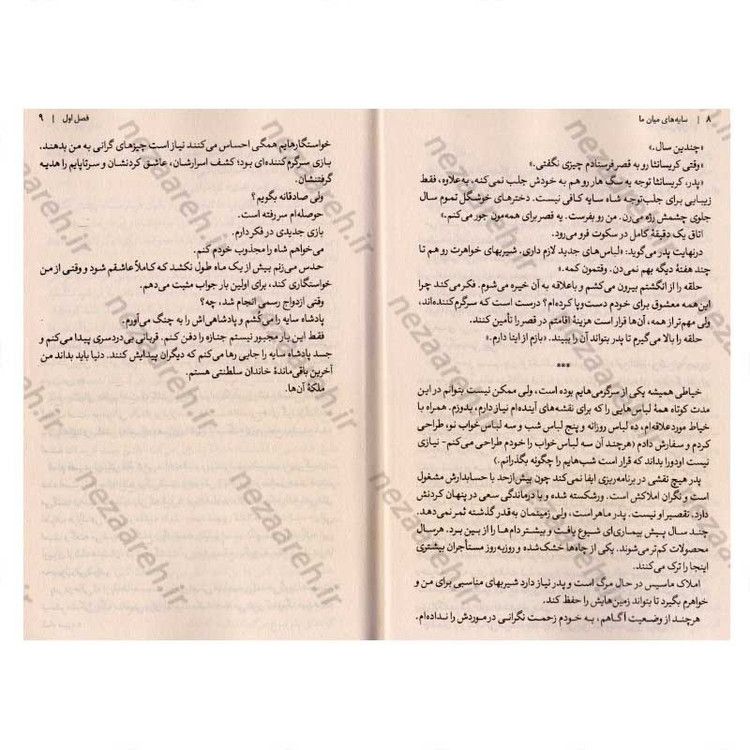 ۸ | سایه‌های میان ما
«چندین سال.»
«وقتی کریسانثا رو به قصر فرستادم چیزی نگفتی.»
«پدر، کریسانثا توجه یه سگ هار رو هم به خودش جلب نمی‌کنه. به‌علاوه، فقط
زیبایی برای جلب‌توجه شاه سایه کافی نیست. دخترهای خوشگل تموم سال
جلوی چشمش رژه می‌رن. من رو بفرست. یه قصر برای همه‌مون جور می‌کنم.»
اتاق یک دقیقهٔ کامل در سکوت فرو می‌رود.
درنهایت پدر می‌گوید: «لباس‌های جدید لازم داری. شیربهای خواهرت رو هم تا
چند هفتهٔ دیگه بهم نمی‌دن. وقتمون کمه.»
حلقه را از انگشتم بیرون می‌کشم و باعلاقه به آن خیره می‌شوم. فکر می‌کند چرا
این‌همه معشوق برای خودم دست‌وپا کرده‌ام؟ درست است که سرگرم‌کننده‌اند،
ولی مهم‌تر از همه، آن‌ها قرار است هزینهٔ اقامتم در قصر را تأمین کنند.
حلقه را بالا می‌گیرم تا پدر بتواند آن را ببیند. «بازم از اینا دارم.»
***
خیاطی همیشه یکی از سرگرمی‌هایم بوده است، ولی ممکن نیست بتوانم در این
مدت کوتاه همهٔ لباس‌هایی را که برای نقشه‌های آینده‌ام نیاز دارم، بدوزم. همراه با
خیاط موردعلاقه‌ام، ده لباس روزانه و پنج لباس شب و سه لباس خواب نو، طراحی
کردم و سفارش دادم (هرچند آن سه لباس خواب را خودم طراحی می‌کنم- نیازی
نیست اودورا بداند که قرار است شب‌هایم را چگونه بگذرانم.)
پدر هیچ نقشی در برنامه‌ریزی ایفا نمی‌کند چون بیش‌ازحد با حسابدارش مشغول
است و نگران املاکش است. ورشکسته شده و با درماندگی سعی در پنهان کردنش
دارد. تقصیر او نیست. پدر ماهر است، ولی زمینمان به‌قدر گذشته ثمر نمی‌دهد.
چند سال پیش بیماری‌ای شیوع یافت و بیشتر دام‌ها را از بین برد. هرسال
محصولات کم‌تر می‌شوند. یکی از چاه‌ها خشک شده و روزبه‌روز مستأجران بیشتری
اینجا را ترک می‌کنند.
املاک ماسیس در حال مرگ است و پدر نیاز دارد شیربهای مناسبی برای من و
خواهرم بگیرد تا بتواند زمین‌هایش را حفظ کند.
هرچند از وضعیت آگاهم، به خودم زحمت نگرانی درموردش را نداده‌ام.
فصل اول | ۹
خواستگارهایم همگی احساس می‌کنند نیاز است چیزهای گرانی به من بدهند.
بازی سرگرم‌کننده‌ای بود؛ کشف اسرارشان، عاشق کردنشان و سرتاپایم را هدیه
گرفتنشان.
ولی صادقانه بگویم؟
حوصله‌ام سر رفته است.
بازی جدیدی در فکر دارم.
می‌خواهم شاه را مجذوب خودم کنم.
حدس می‌زنم بیش از یک ماه طول نکشد که کاملاً عاشقم شود و وقتی از من
خواستگاری کند، برای اولین بار جواب مثبت می‌دهم.
وقتی ازدواج رسمی انجام شد، چه؟
پادشاه سایه را می‌کُشم و پادشاهی‌اش را به چنگ می‌آورم.
فقط این بار مجبور نیستم جنازه را دفن کنم. قربانی بی‌دردسری پیدا می‌کنم و
جسد پادشاه سایه را جایی رها می‌کنم که دیگران پیدایش کنند. دنیا باید بداند من
آخرین باقی‌ماندهٔ خاندان سلطنتی هستم.
ملکهٔ آن‌ها.
nezaareh.ir